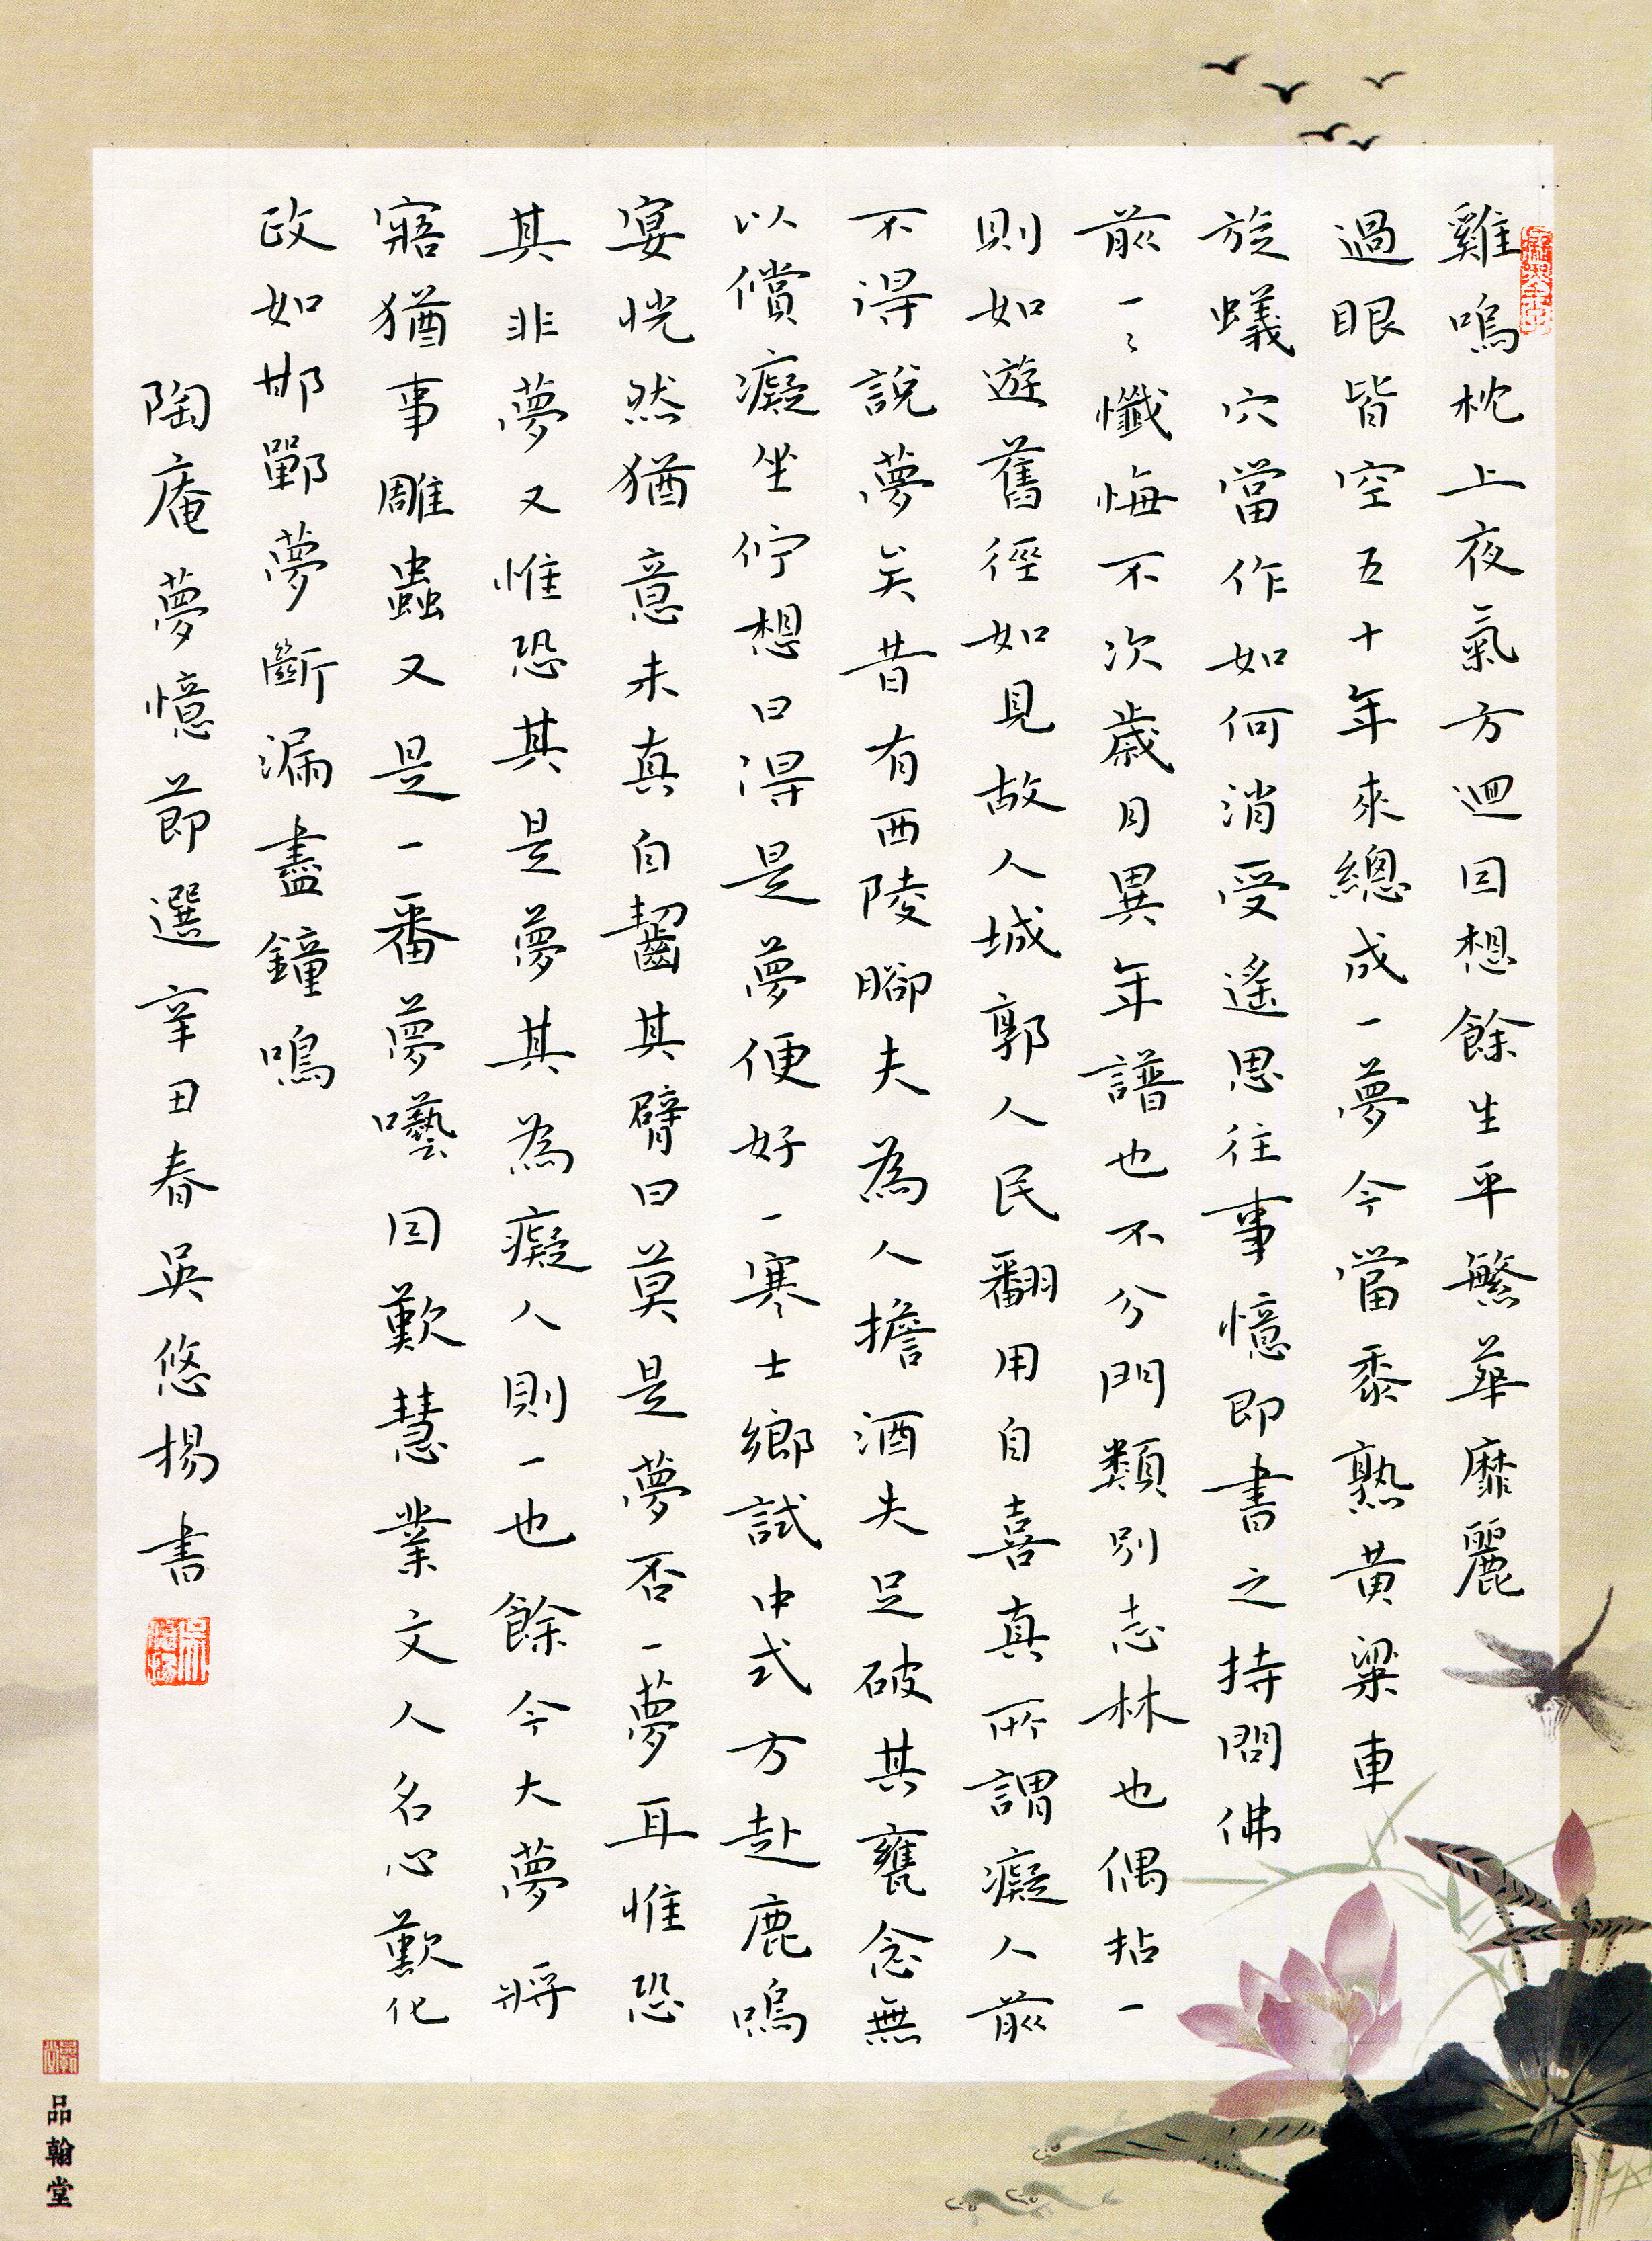 雞鳴枕上夜氣方迴回想餘生平繁華靡麗
過眼皆空五十年來總成一夢今當黍熟黃粱車
旋蟻穴當作如何消受遙思往事憶即書之持問佛
前一〻懺悔不次歲月異年譜也不分門類別志林也偶拈一
則如遊舊徑如見故人城郭人民翻用自喜真所謂癡人前
不得說夢矣昔有西陵腳夫為人擔酒失足破其甕念無
以償癡坐佇想曰得是夢便好一寒士鄉試中式方赴鹿鳴
宴恍然猶意未真自齧其臂曰莫是夢否一夢耳惟恐
其非夢又惟恐其是夢其為癡人則一也餘今大夢將
寤猶事雕蟲又是一番夢囈因歎慧業文人名心歎化
政如邯鄲夢斷漏盡鐘鳴
陶庵夢憶節選辛丑春吳悠揚書
吳悠揚
品翰堂